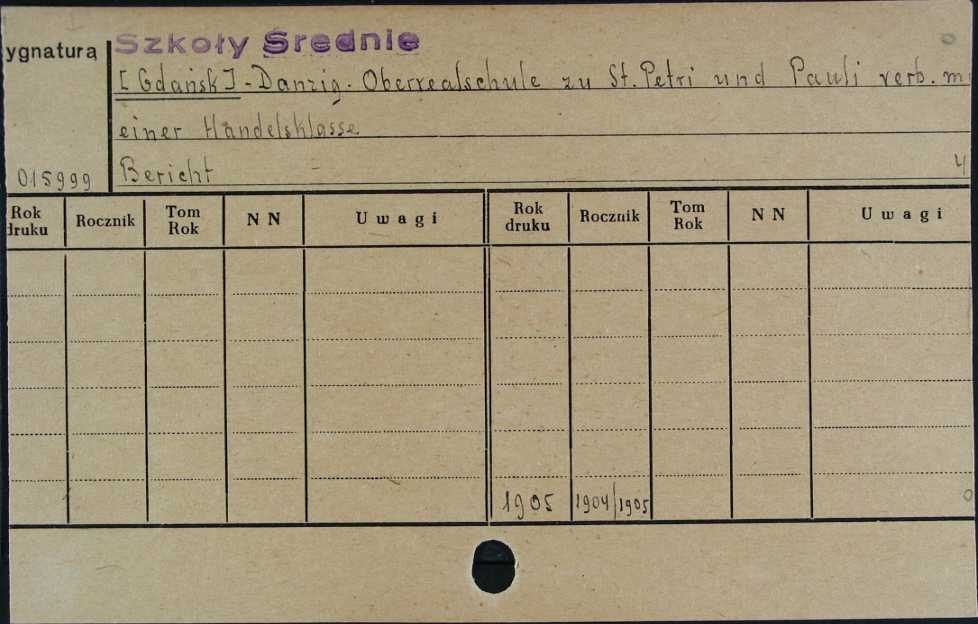 ygnatura Szkoły Srednie
[Gdańsk]-Danzig. Oberrealschule zu St. Petri und Pauli verb. m
einer Handelsklasse
015999 Bericht 4
Rok druku Rocznik Tom Rok N N Uwagi Rok druku Rocznik Tom Rok N N Uwagi
1905 1904/1905